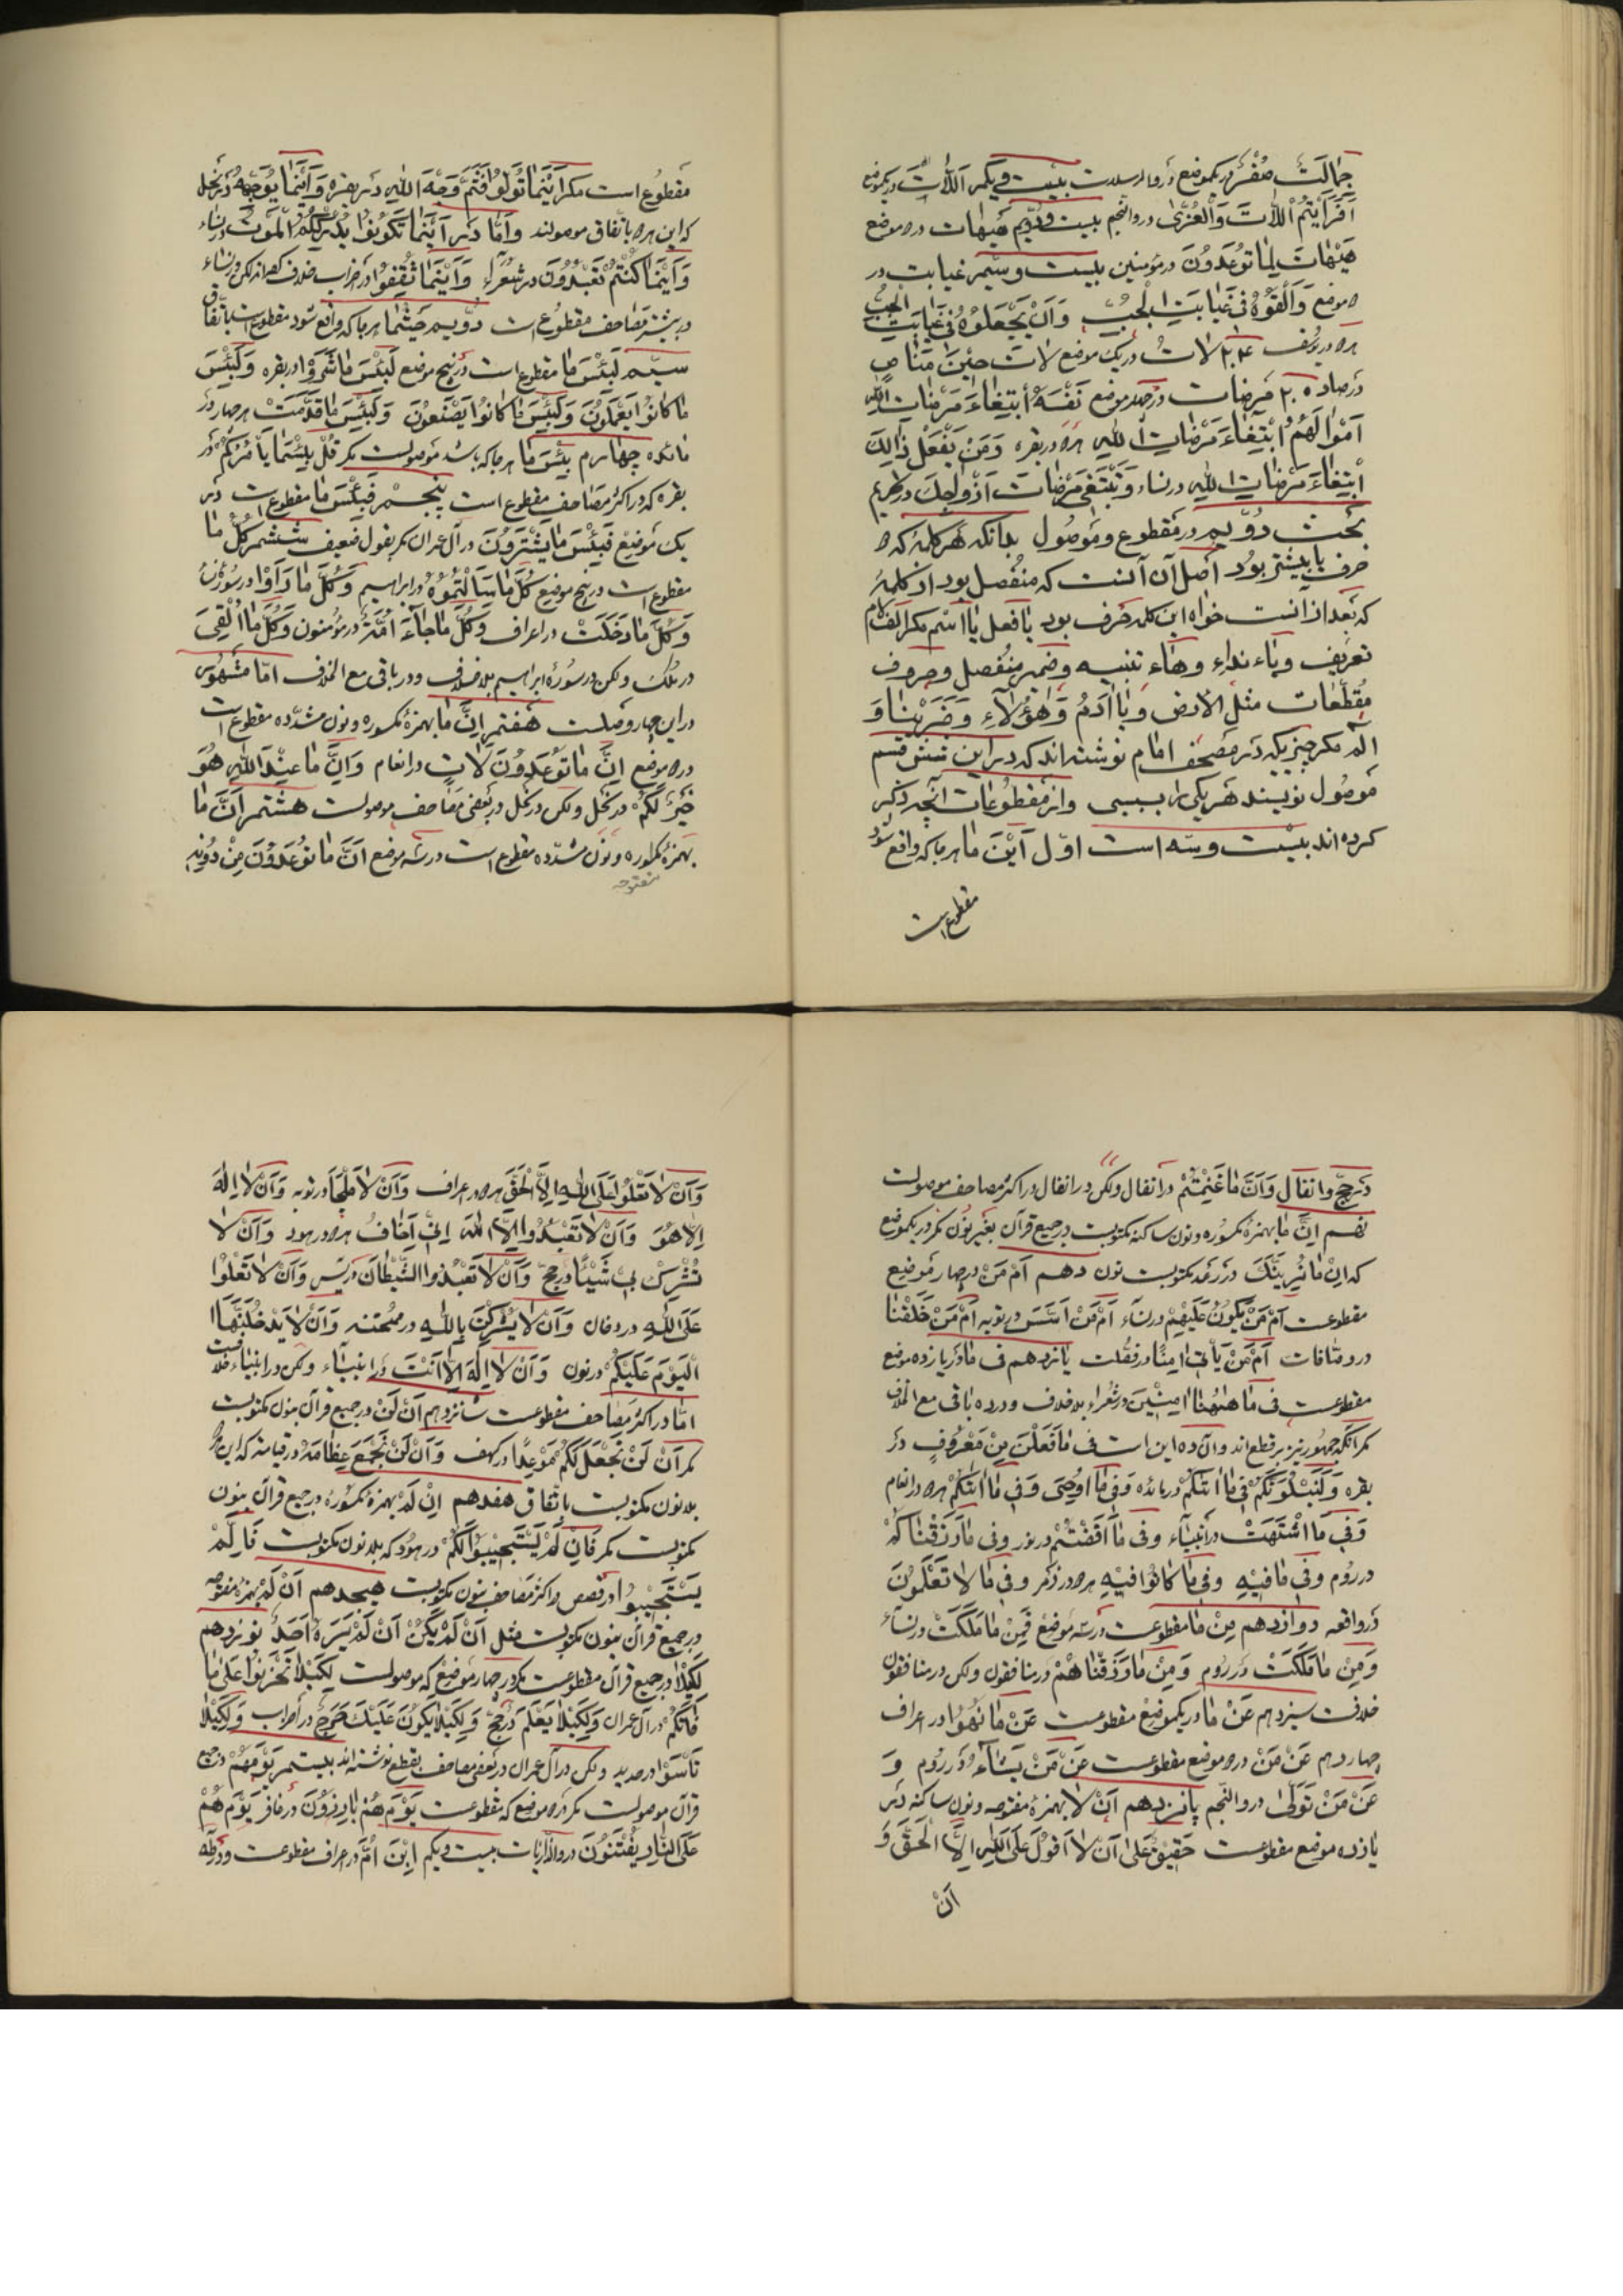 جِمالَتٌ صُفْرٌ در یکموضع در والمرسلات بیست و یکم اَللّاتَ در یکموضع
اَفَرَاَیْتُمُ اللّاتَ وَالْعُزّیٰ در والنجم بیست و دوّیم هَیْهات در دو موضع
هَیْهاتَ لِمٰا تُوعَدُونَ در مؤمنین بیست و سیّم غیابت در
دو موضع وَاَلْقُوهُ فی غَیٰابَتِ الْجُبِّ وَاَنْ یَجْعَلُوهُ فی غَیٰابَتِ الْجُبِّ
هر دو در یوسف ۲۴ لاتَ در یک موضع لاتَ حینَ مَنٰاصٍ
در صاد ۲۵ مَرضات در چهار موضع نَفْسَهُ ابْتِغٰاءَ مَرْضٰاتِ اللهِ
اَمْوالَهُمُ ابْتِغٰاءَ مَرْضٰاتِ اللهِ هر دو در بقره وَمَنْ یَفْعَلْ ذٰلِکَ
ابْتِغٰاءَ مَرْضٰاتِ اللهِ در نساء وَتَبْتَغی مَرْضٰاتَ اَزْوٰاجِکَ در تحریم
بحث دوّیم در مقطوع و موصول بدانکه هر کلمهٔ که دو
حرف یا بیشتر بود اصل آن آنست که منفصل بود از کلمهٔ
که بعد از آنست خواه این کلمه حرف بود یا فعل یا اسم مکر الف لام
تعریف و یاء نداء و هاء تنبیه و ضمیر منفصل و حروف
مقطّعات مثل الارض و یٰا اٰدَمُ وَهٰؤُلآءِ وَضَرَبْنٰا وَ
الٓمٓ مکر چیزیکه در مصحف امام نوشته اند که در این شش قسم
موصول نویسند هر یکی را بسببی و از مقطوعات آنچه ذکر
کرده اند بیست و سه است اوّل اَیْنَ مٰا هر جا که واقع شود
مقطوع است
مقطوع است مکر اَیْنَمٰا تُوَلُّوا فَثَمَّ وَجْهُ اللهِ در بقره وَاَیْنَمٰا یُوَجِّهْهُ در نحل
که این هر دو باتّفاق موصولند و امّا در اَیْنَمٰا تَکُونُوا یُدْرِکْکُمُ الْمَوْتُ در نساء
وَاَیْنَمٰا کُنْتُمْ تَعْبُدُونَ در شعراء وَاَیْنَمٰا ثُقِفُوا در احزاب خلاف کرده اند لکن در نساء
در بیشتر مصاحف مقطوع است دوّیم حَیْثُمٰا هر جا که واقع شود مقطوعست باتّفاق
سیّم لَبِئْسَ مٰا مقطوع است در پنج موضع لَبِئْسَ مٰا شَرَوْا در بقره وَلَبِئْسَ
مٰا کٰانُوا یَعْمَلُونَ وَلَبِئْسَ مٰا کٰانُوا یَصْنَعُونَ وَلَبِئْسَ مٰا قَدَّمَتْ هر چهار در
مائده چهارم بِئْسَ مٰا هر جا که باشد موصولست مکر قُلْ بِئْسَمٰا یَأْمُرُکُمْ در
بقره که در اکثر مصاحف مقطوع است پنجم فَبِئْسَ مٰا مقطوعست در
یک موضع فَبِئْسَ مٰا یَشْتَرُونَ در آل عمران مکر بقول ضعیف ششم کُلَّ مٰا
مقطوعست در پنج موضع کُلَّ مٰا سَأَلْتُمُوهُ در ابراهیم وَکُلَّ مٰا رُدُّوا در سورهٔ نساء
وَکُلَّ مٰا دَخَلَتْ در اعراف وَکُلَّ مٰا جٰاءَ اُمَّةً در مؤمنون وَکُلَّ مٰا اُلْقِیَ
در ملک ولکن در سورهٔ ابراهیم بلاخلاف و در باقی مع الخلاف امّا مشهور
در این چهار وصلست هفتم اِنَّ مٰا بهمزهٔ مکسوره و نون مشدّده مقطوع است
در دو موضع اِنَّ مٰا تُوعَدُونَ لَاٰتٍ در انعام وَاِنَّ مٰا عِنْدَ اللهِ هُوَ
خَیْرٌ لَکُمْ در نحل ولکن در نحل در بعضی مصاحف موصولست هشتم اَنَّ مٰا
بهمزهٔ مکسوره و نون مشدّده مقطوع است در سه موضع اَنَّ مٰا تُوعَدُونَ مِنْ دُونِهِ
مفتوحه
در حجّ و انفال وَاَنَّ مٰا غَنِمْتُمْ در انفال ولکن در انفال در اکثر مصاحف موصولست
نهم اِنْ مٰا بهمزهٔ مکسوره و نون ساکنه مکتوبست در جمیع قرآن بغیر نون مکر در یکموضع
که اِنْ مٰا نُرِیَنَّکَ در رعد مکتوبست نون دهم اَمْ مَنْ در چهار موضع
مقطوعست اَمْ مَنْ یَکُونُ عَلَیْهِمْ در نساء اَمْ مَنْ اَسَّسَ در توبه اَمْ مَنْ خَلَقْنٰا
در و صّافات اَمْ مَنْ یَأْتی اٰمِنًا در فصّلت یازدهم فی مٰا در یازده موضع
مقطوعست فی مٰا هٰهُنٰا اٰمِنینَ در شعراء بلاخلاف و در ده باقی مع الخلاف
مکر آنکه جمهور نیز بر قطع اند و آن ده این است فی مٰا فَعَلْنَ مِنْ مَعْرُوفٍ در
بقره وَلِیَبْلُوَکُمْ فی مٰا اٰتٰکُمْ در مائده وَفی مٰا اُوحِیَ وَفی مٰا اٰتٰکُمْ هر دو در انعام
وَفی مٰا اشْتَهَتْ در انبیاء وفی مٰا اَفَضْتُمْ در نور وفی مٰا رَزَقْنٰاکُمْ
در روم وفی مٰا فیهِ وفی مٰا کٰانُوا فیهِ هر دو در زمر وفی مٰا لا تَعْلَمُونَ
در واقعه دوازدهم مِنْ مٰا مقطوعست در سه موضع فَمِنْ مٰا مَلَکَتْ در نساء
وَمِنْ مٰا مَلَکَتْ در روم وَمِنْ مٰا رَزَقْنٰاهُمْ در منافقون ولکن در منافقون
خلافست سیزدهم عَنْ مٰا در یکموضع مقطوعست عَنْ مٰا نُهُوا در اعراف
چهاردهم عَنْ مَنْ در دو موضع مقطوعست عَنْ مَنْ یَشٰاءُ در روم وَ
عَنْ مَنْ تَوَلّیٰ در والنّجم پانزدهم اَنْ لا بهمزهٔ مفتوحه و نون ساکنه در
یازده موضع مقطوعست حَقیقٌ عَلیٰ اَنْ لا اَقُولَ عَلَی اللهِ اِلَّا الْحَقَّ وَ
اَنْ
وَاَنْ لا تَقُولُوا عَلَی اللهِ اِلَّا الْحَقَّ هر دو در اعراف وَاَنْ لا مَلْجَأَ در توبه وَاَنْ لا اِلٰهَ
اِلّا هُوَ وَاَنْ لا تَعْبُدُوا اِلَّا اللهَ اِنّی اَخٰافُ هر دو در هود وَاَنْ لا
تُشْرِکْ بی شَیْئًا در حجّ وَاَنْ لا تَعْبُدُوا الشَّیْطٰانَ در یٰس وَاَنْ لا تَعْلُوا
عَلَی اللهِ در دخان وَاَنْ لا یُشْرِکْنَ بِاللهِ در ممتحنه وَاَنْ لا یَدْخُلَنَّهَا
الْیَوْمَ عَلَیْکُمْ در نون وَاَنْ لا اِلٰهَ اِلّا اَنْتَ در انبیاء ولکن در انبیاء خلافست
امّا در اکثر مصاحف مقطوعست شانزدهم اَنْ لَنْ در جمیع قرآن بنون مکتوبست
مکر اَنْ لَنْ نَجْعَلَ لَکُمْ مَوْعِدًا در کهف وَاَنْ لَنْ نَجْمَعَ عِظٰامَهُ در قیامة که این هر دو
بلانون مکتوبست باتّفاق هفدهم اِنْ لَمْ بهمزهٔ مکسوره در جمیع قرآن بنون
مکتوبست مکر فَاِنْ لَمْ یَسْتَجیبُوا لَکُمْ در هود که بلانون مکتوبست فَاِلَّمْ
یَسْتَجیبُوا در قصص در اکثر مصاحف بنون مکتوبست هیجدهم اَنْ لَمْ بهمزهٔ مفتوحه
در جمیع قرآن بنون مکتوبست مثل اَنْ لَمْ یَکُنْ اَنْ لَمْ یَرَهُ اَحَدٌ نوزدهم
لِکَیْلا در جمیع قرآن مقطوعست مکر در چهار موضع که موصولست لِکَیْلا تَحْزَنُوا عَلیٰ مٰا
فٰاتَکُمْ در آل عمران وَلِکَیْلا یَعْلَمَ در حجّ وَلِکَیْلا یَکُونَ عَلَیْکَ حَرَجٌ در احزاب وَلِکَیْلا
تَأْسَوْا در حدید ولکن در آل عمران در بعضی مصاحف بقطع نوشته اند بیستم یَوْمَهُمْ در جمیع
قرآن موصولست مکر در دو موضع که مقطوعست یَوْمَ هُمْ بٰارِزُونَ در غافر یَوْمَ هُمْ
عَلَی النّٰارِ یُفْتَنُونَ در والذّاریات بیست و یکم اِبْنَ اُمَّ در اعراف مقطوعست و در طٰه